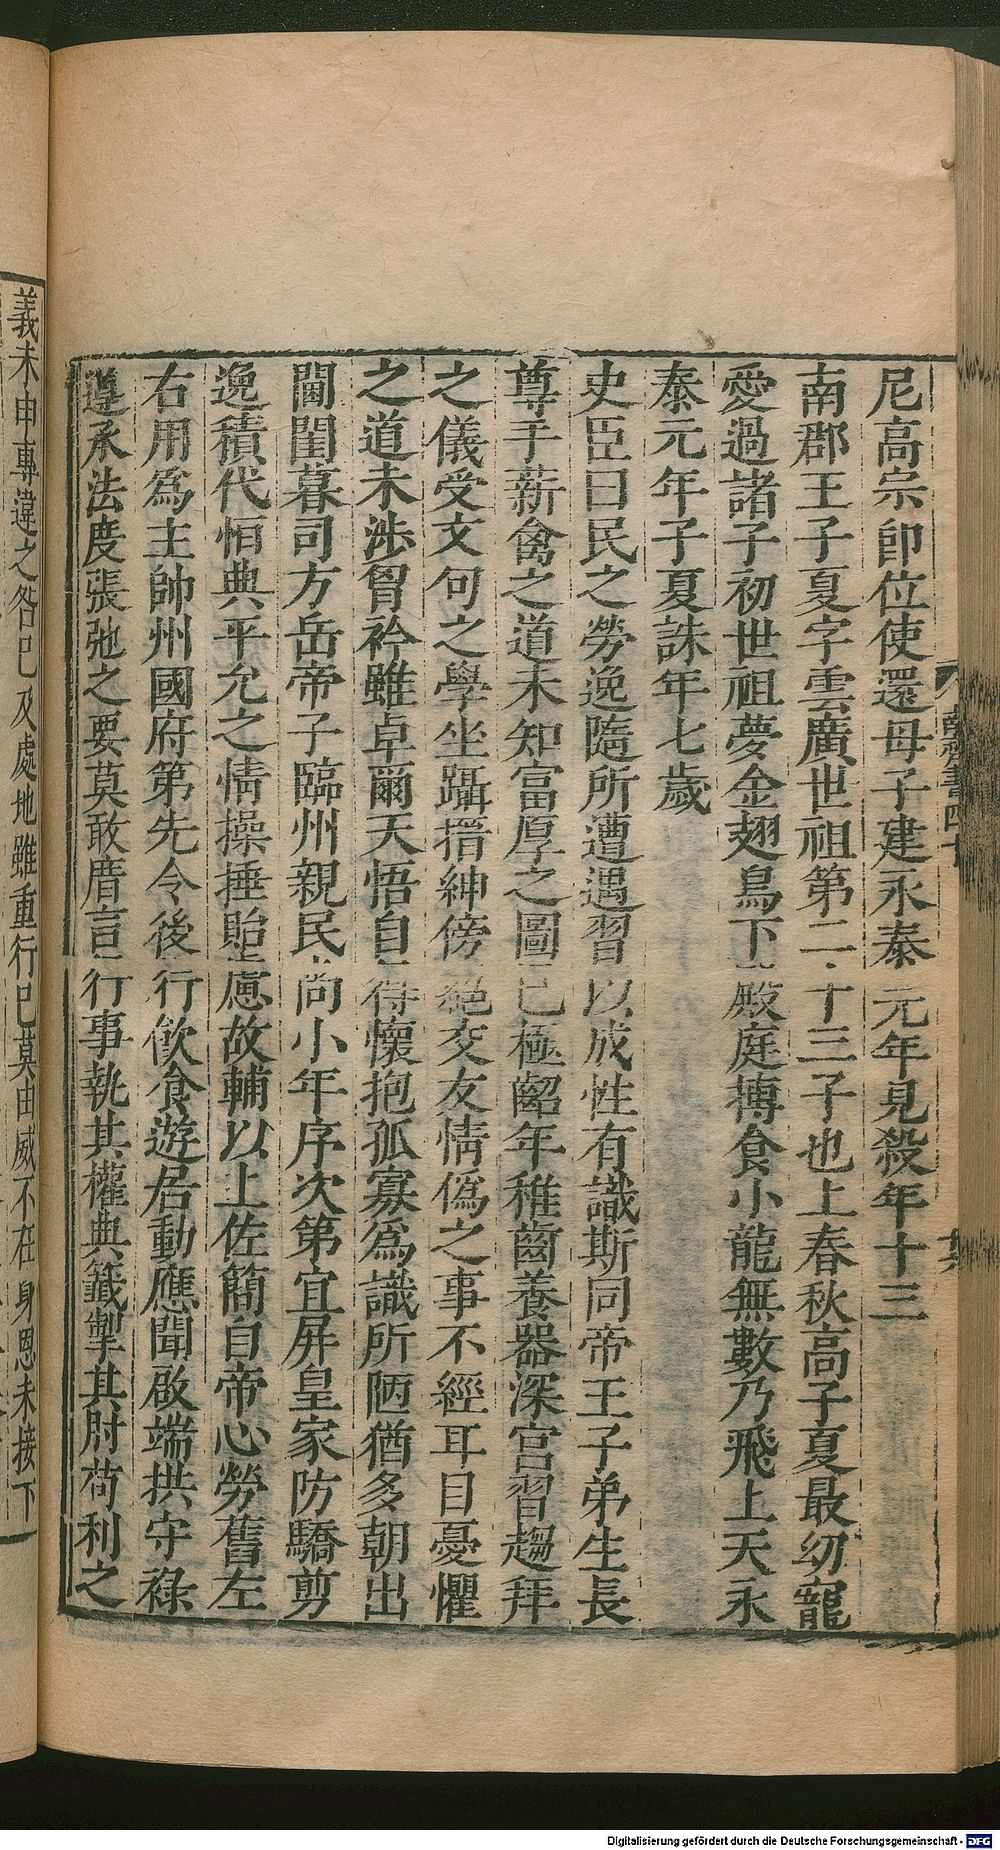 尼高宗卽位使還母子建永泰元年見殺年十三
南郡王子夏字雲廣世祖第二十三子也上春秋高子夏最幼寵
愛過諸子初世祖夢金翅鳥下殿庭搏食小龍無數乃飛上天永
泰元年子夏誅年七歲
史臣曰民之勞逸隨所遭遇習以成性有識斯同帝王子弟生長
尊手薪禽之道未知富厚之圖已極齠年稚齒養器深宮習趨拜
之儀受文句之學坐躡搢紳傍絕交友情僞之事不經耳目憂懼
之道未涉胷衿雖卓爾天悟自得懷抱孤寡爲識所陋猶多朝出
閫閨暮司方岳帝子臨州親民尚小年序次第宜屛皇家防驕剪
逸積代恒典平允之情操捶貽慮故輔以上佐簡自帝心勞舊左
右用爲主帥州國府第先令後行飮食遊居動應聞啟端拱守祿
遵承法度張弛之要莫敢厝言行事執其權典籤掣其肘苟利之
義未申專違之咎已及處地雖重行已莫由威不在身恩未接下
南齊書四十
Digitalisierung gefördert durch die Deutsche Forschungsgemeinschaft - DFG